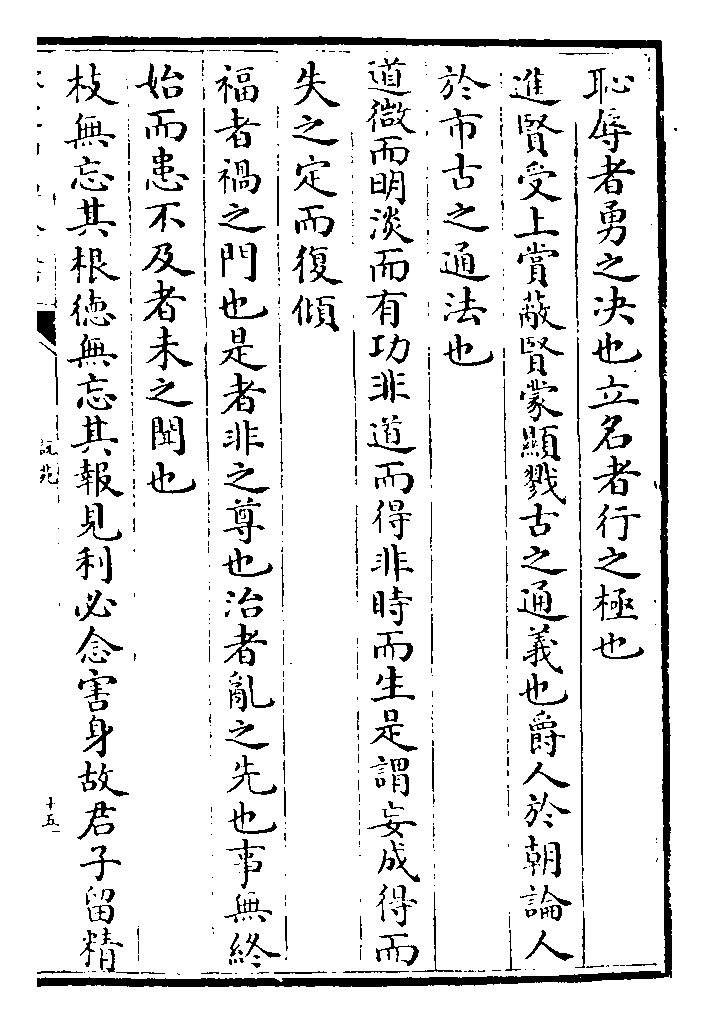 恥辱者勇之决也立名者行之極也
進賢受上賞蔽賢蒙顯戮古之通義也爵人於朝論人
於市古之通法也
道微而明淡而有功非道而得非時而生是謂妄成得而
失之定而復傾
福者禍之門也是者非之尊也治者亂之先也事無終
始而患不及者未之聞也
枝無忘其根徳無忘其報見利必念害身故君子留精
說苑
十五